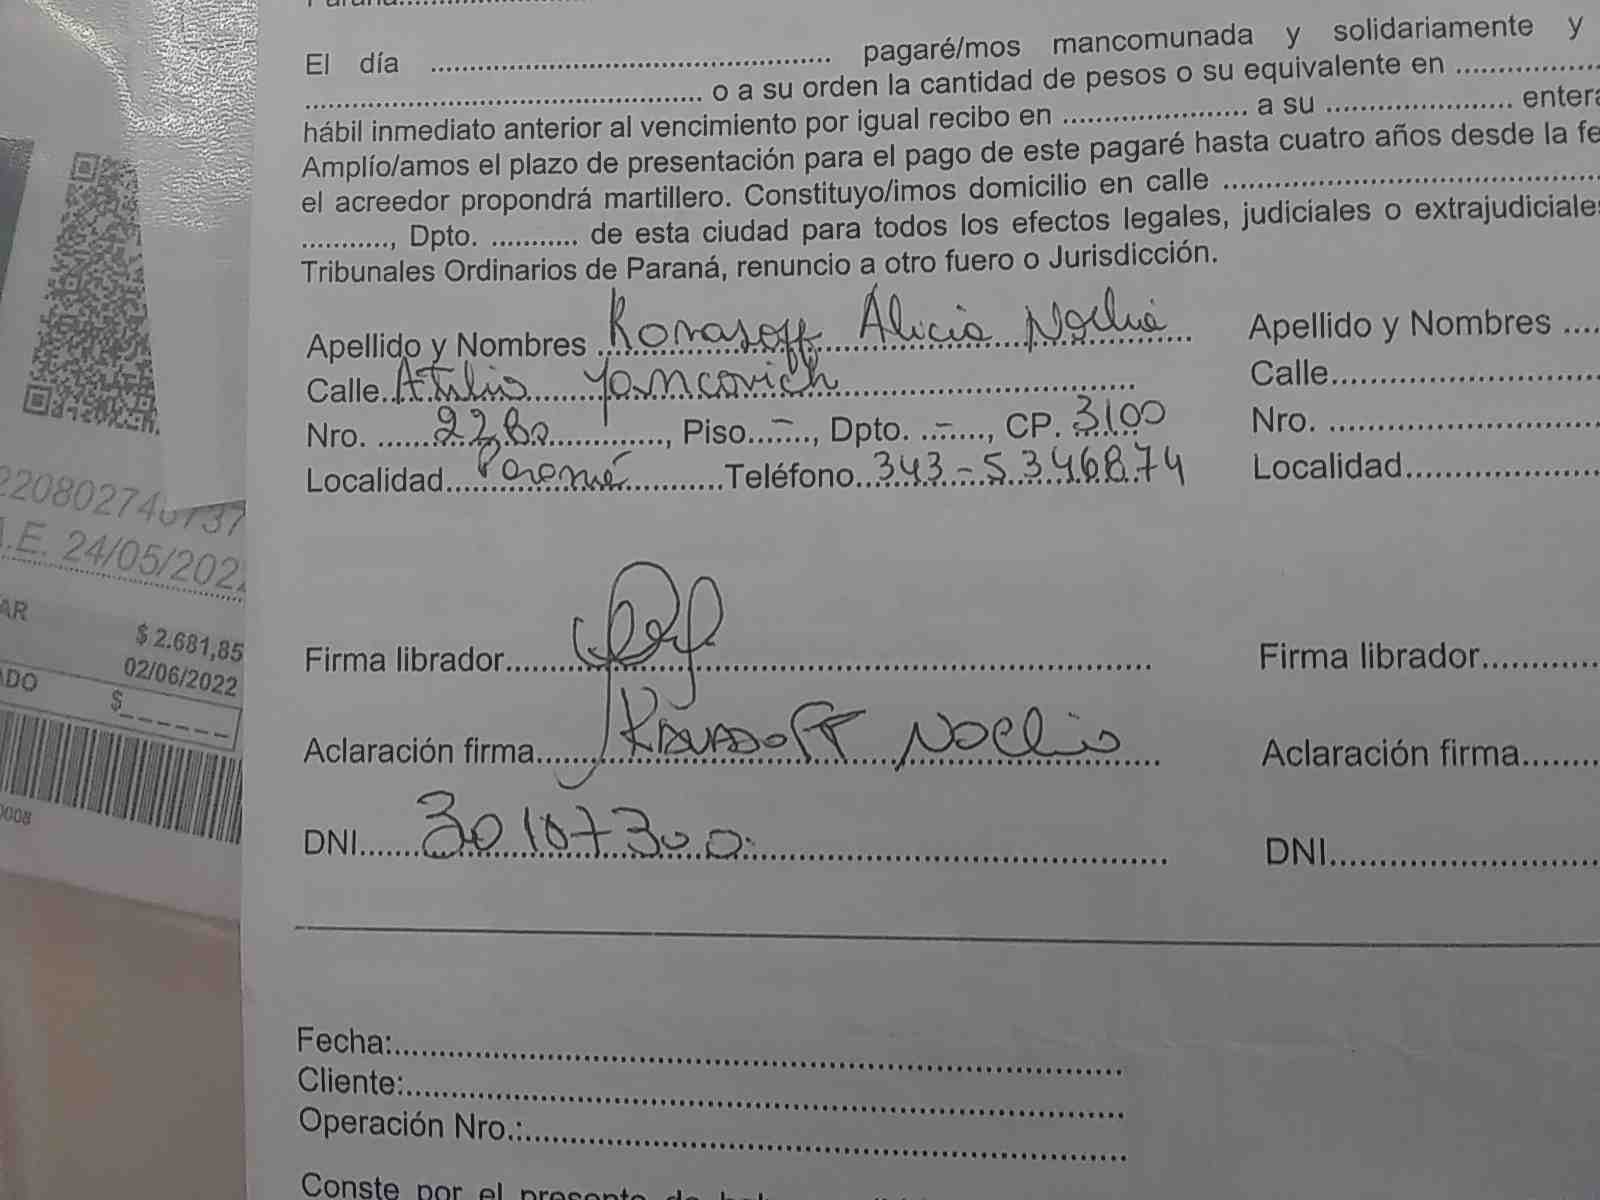 El día .......... pagaré/mos mancomunada y solidariamente y
.......... o a su orden la cantidad de pesos o su equivalente en ..........
hábil inmediato anterior al vencimiento por igual recibo en .......... a su .......... entera
Amplío/amos el plazo de presentación para el pago de este pagaré hasta cuatro años desde la fe
el acreedor propondrá martillero. Constituyo/imos domicilio en calle ..........
..........., Dpto. ........... de esta ciudad para todos los efectos legales, judiciales o extrajudiciales
Tribunales Ordinarios de Paraná, renuncio a otro fuero o Jurisdicción.
Apellido y Nombres Alicia Noelia
Calle Atilio Yancovich
Nro. 2280, Piso - , Dpto. - , CP. 3100
Localidad Paraná Teléfono 343-5346874
Firma librador
Aclaración firma Noelia
DNI 30107300
Apellido y Nombres ....
Calle..........
Nro. ..........
Localidad..........
Firma librador..........
Aclaración firma..........
DNI..........
Fecha:..........
Cliente:..........
Operación Nro.:..........
Conste por el presente
24/05/202
$ 2.681,85
02/06/2022
ADO $